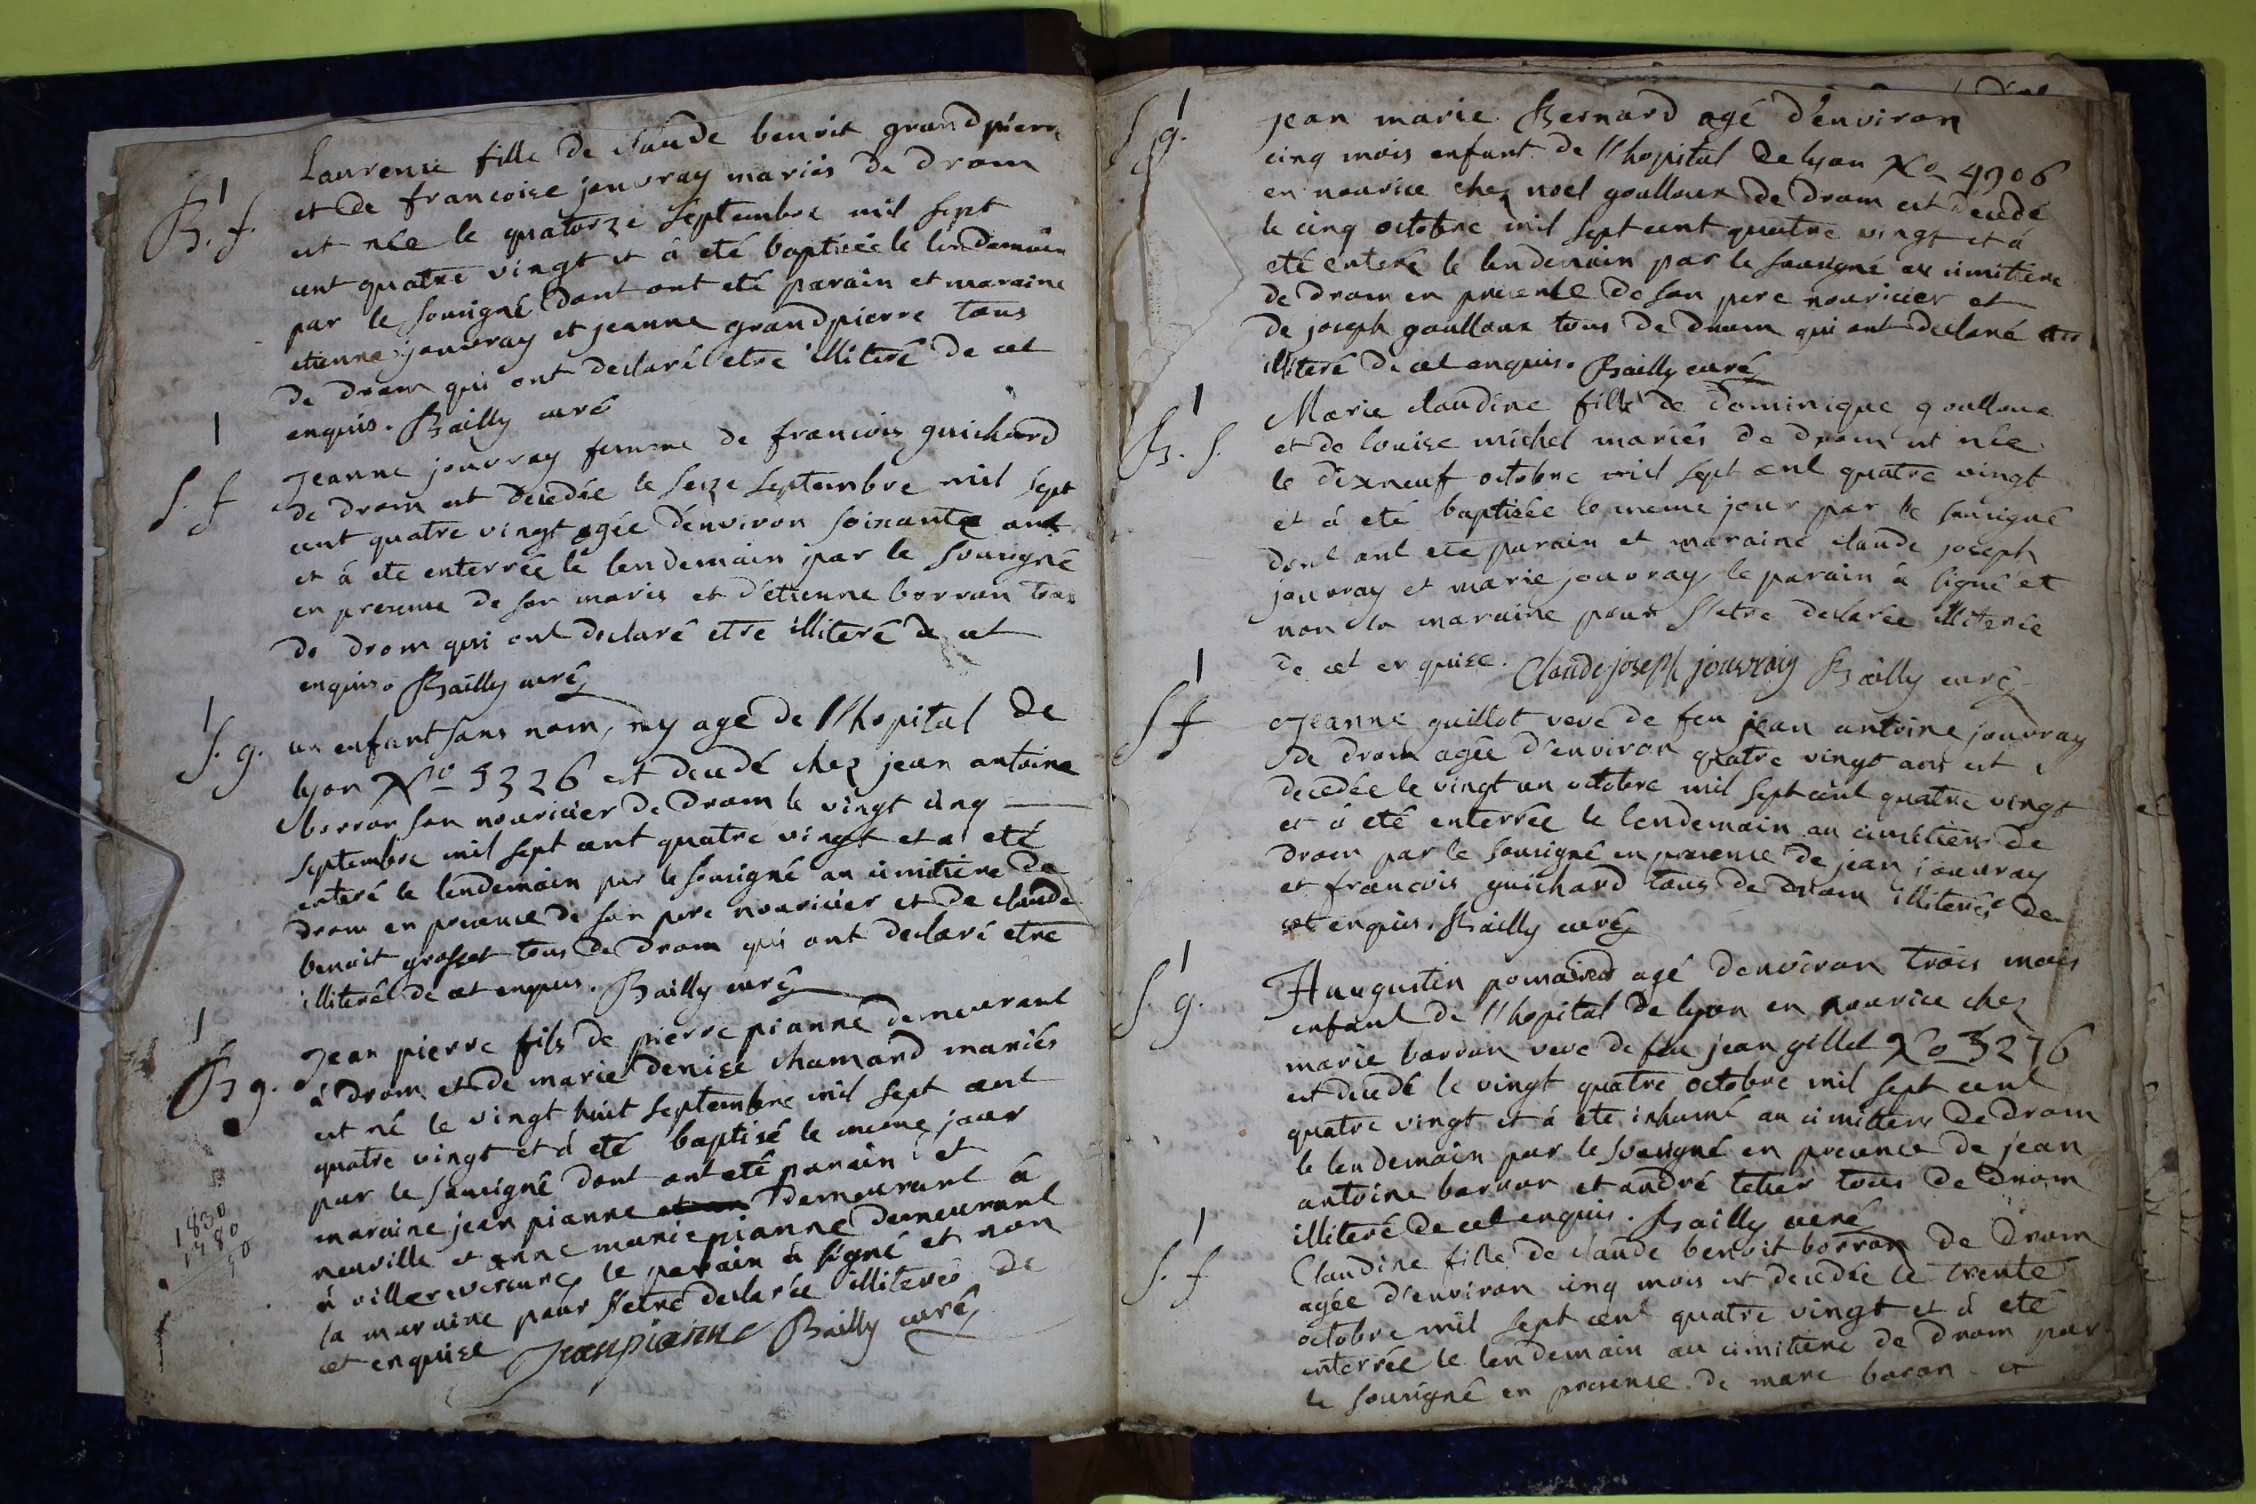 B. f.
Laurence fille de claude benoit grandpierre
et de francoise jouvray mariés de drom
est née le quatorze septembre mil sept
cent quatre vingt et à eté baptisée le lendemain
par le sousigné dont ont eté parain et maraine
etienne jouvray et jeanne grandpierre tous
de drom qui ont declaré etre illiteré de cet
enquis. Bailly curé
S. f
Jeanne jouvray femme de francois guichard
de drom est decedée le seize septembre mil sept
cent quatre vingt agée d'environ soixante ans
et à ete enterrée le lendemain par le sousigné
en presence de son maris et d'étienne borron tous
de drom qui ont declaré etre illiteré de cet
enquis. Bailly curé
S. g.
un enfant sans nom, ny age de l'hopital de
lyon No 5326 est decedé chez jean antoine
borron son nouricier de drom le vingt cinq
septembre mil sept cent quatre vingt et a eté
enteré le lendemain par le sousigné au cimitiere de
drom en presence de son pere nouricier et de claude
benoit grosset tous de drom qui ont declaré etre
illiteré de cet enquis. Bailly curé
B g.
Jean pierre fils de pierre pianne demeurant
à drom et de marie denise chamard mariés
est né le vingt huit septembre mil sept cent
quatre vingt et à eté baptisé le meme jour
par le sousigné dont ont eté parain et
maraine jean pianne demeurant à
neuville et anne marie pianne demeurant
à villereversure, le parain à signé et non
la maraine pour s'etre declarée illiterée de
cet enquise Jean pianne Bailly curé
1830
1780
50
S g.
jean marie Bernard agé d'environ
cinq mois enfant de l'hopital de lyon No 4906
en nourice chez noel goulloux de drom est decedé
le cinq octobre mil sept cent quatre vingt et à
eté enteré le lendemain par le sousigné au cimitiere
de drom en presence de son pere nouricier et
de joseph goulloux tous de drom qui ont declaré etre
illiteré de cet enquis. Bailly curé
B. f.
Marie claudine fille de dominique goulloux
et de louise michel mariés de drom est née
le dixneuf octobre mil sept cent quatre vingt
et à eté baptisée le meme jour par le sousigné
dont ont ete parain et maraine claude joseph
jouvray et marie jouvray, le parain à signé et
non la maraine pour s'etre declarée illiterée
de cet enquise. Claude joseph jouvray Bailly curé
S f
Jeanne guillot veve de feu jean antoine jouvray
de drom agée d'environ quatre vingt ans est
decedée le vingt un octobre mil sept cent quatre vingt
et à eté enterrée le lendemain au cimitiere de
drom par le sousigné en presence de jean jouvray
et francois guichard tous de drom illiterés de
cet enquis. Bailly curé
S. g.
Auugustin pomared agé denviron trois mois
enfant de l'hopital de lyon en nourice chez
marie borron veve de feu jean gillet No 5276
est decedé le vingt quatre octobre mil sept cent
quatre vingt et à ete inhumé au cimitiere de drom
le lendemain par le sousigné en presence de jean
antoine borron et andré tetier tous de drom
illiteré de cet enquis. Bailly curé
S. f
Claudine fille de claude benoit borron de drom
agée d'environ cinq mois est decedée le trente
octobre mil sept cent quatre vingt et à eté
enterrée le lendemain au cimitiere de drom par
le sousigné en presence de marc boron et